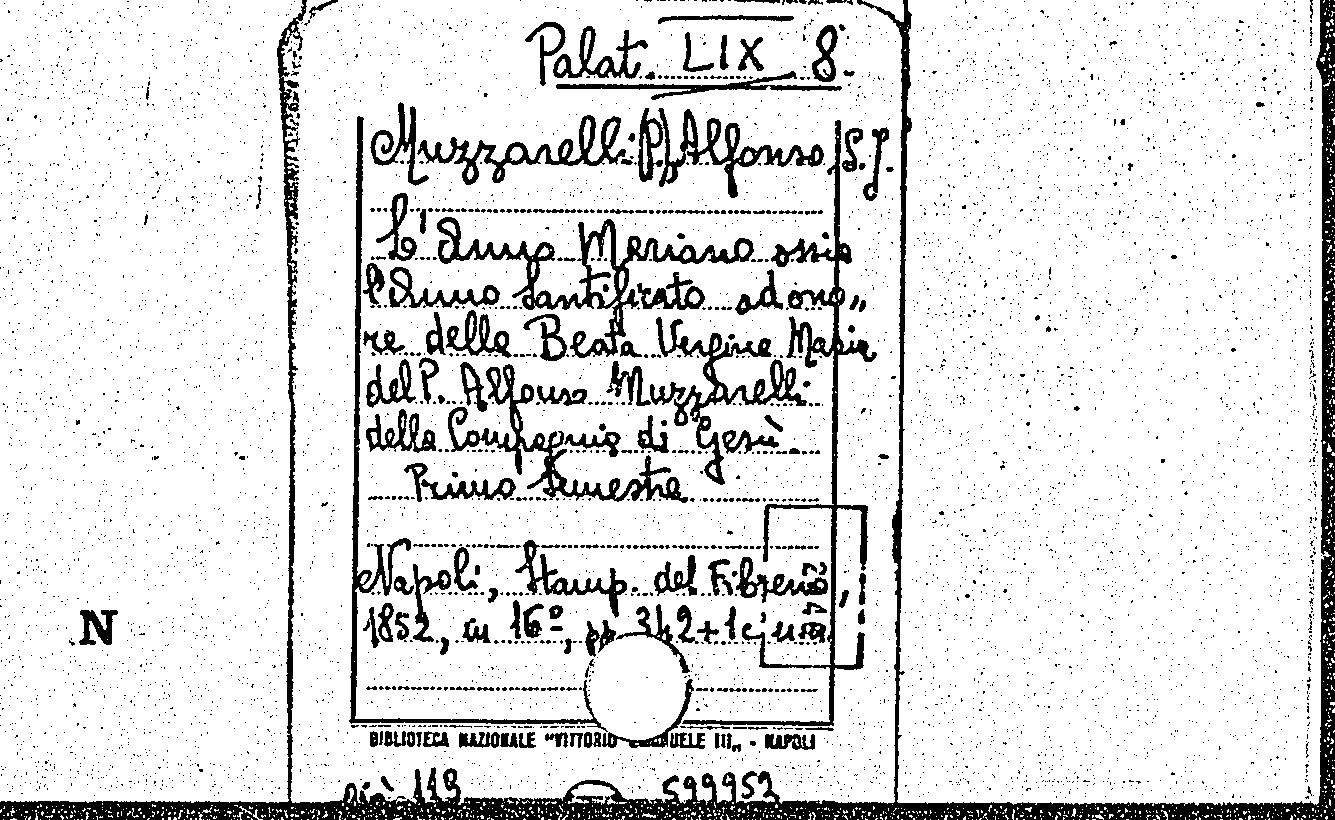 Palat. LIX 8.
Muzzarelli (P.) Alfonso, S.J.
L'Anno Mariano ossia
l'Anno Santificato ad ono„
re della Beata Vergine Maria
del P. Alfonso Muzzarelli
della Compagnia di Gesù.
Primo Semestre
Napoli, Stamp. del Fibreno,
1852, in 16º, pp 342+1c.
N
BIBLIOTECA NAZIONALE "VITTORIO EMANUELE III„ - NAPOLI
già 119 599952